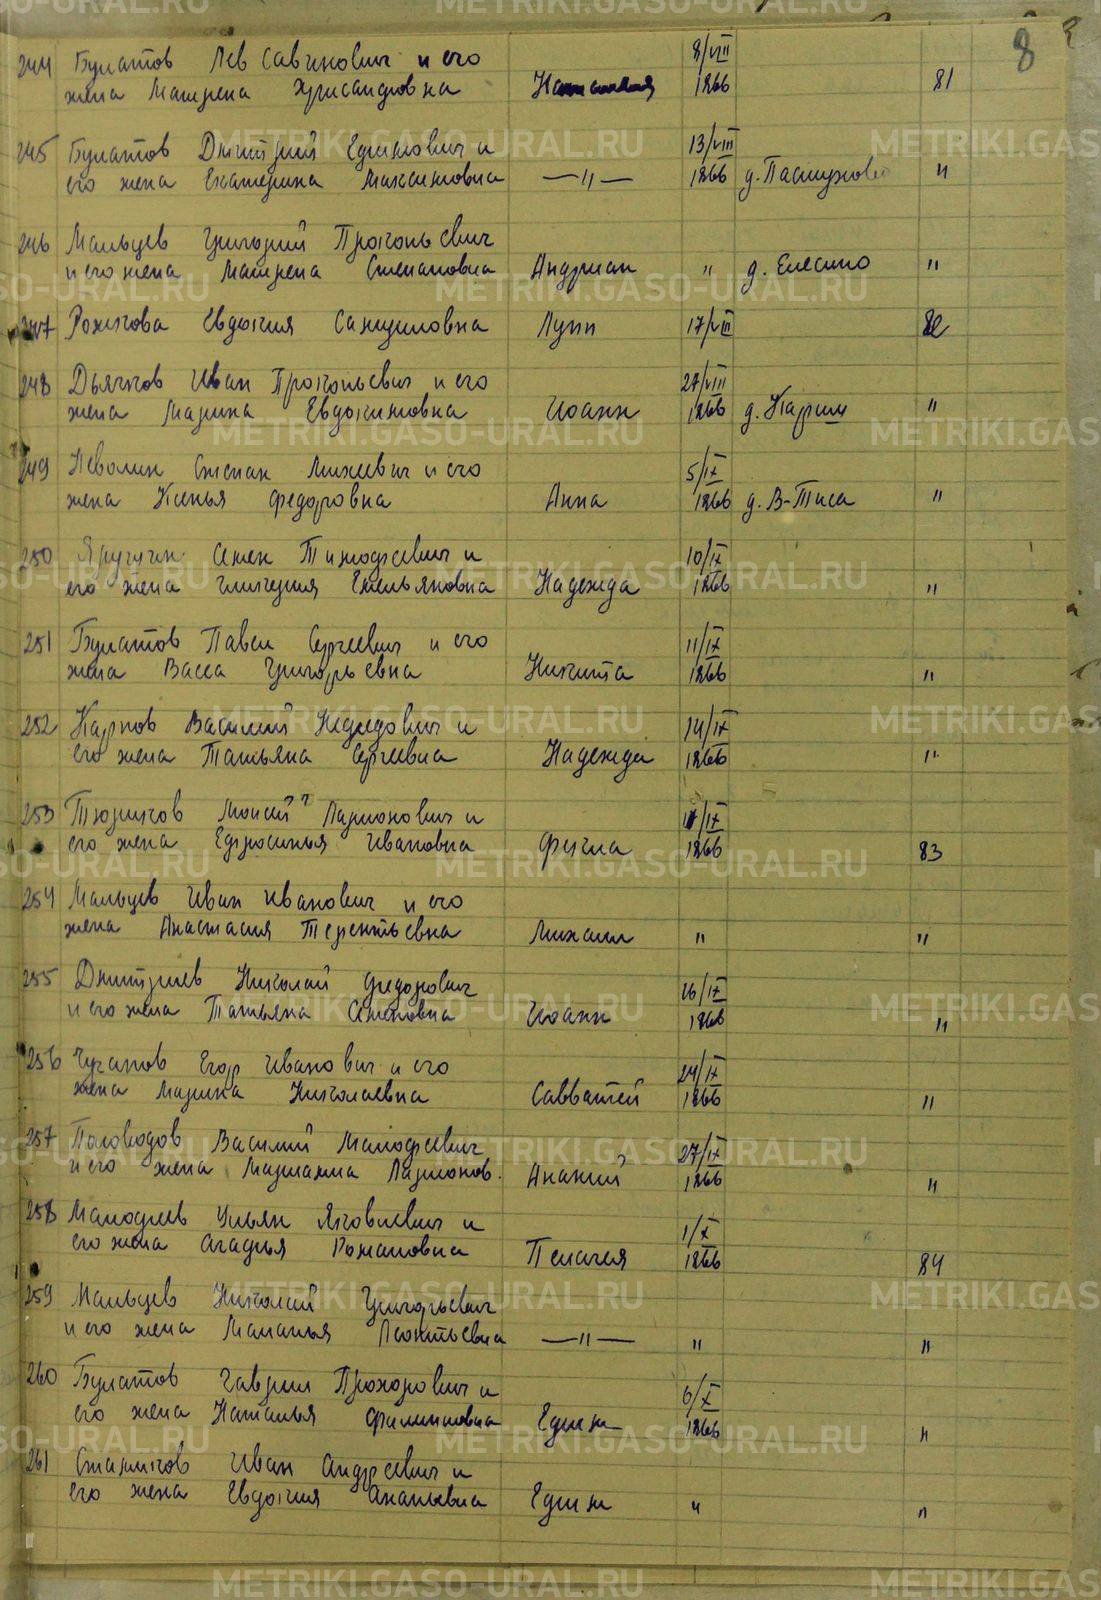 8
244 Булатов Лев Савинович и его 8/VIII
жена Матрена Хрисандровна Наталья 1866 81
245 Булатов Дмитрий Ефимович и 13/VIII
его жена Екатерина Максимовна —"— 1866 д. Пастухово "
246 Мальцев Григорий Прокопьевич
и его жена Матрена Степановна Андриан " д. Елесино "
247 Рожкова Евдокия Самуиловна Лупп 17/VIII 82
248 Дьячков Иван Прокопьевич и его 27/VIII
жена Марина Евдокимовна Иоанн 1866 д. Карши "
249 Неволин Степан Михеевич и его 5/IX
жена Ксенья Федоровна Анна 1866 д. В-Тиса "
250 Семен Тимофеевич и 10/IX
его жена Гликерия Емельяновна Надежда 1866 "
251 Булатов Павел Сергеевич и его 11/IX
жена Васса Григорьевна Никита 1866 "
252 Карпов Василий и 14/IX
его жена Татьяна Сергеевна Надежда 1866 "
253 Тюриков Моисей Ларионович и 17/IX
его жена Ефросинья Ивановна Фекла 1866 83
254 Мальцев Иван Иванович и его
жена Анастасия Терентьевна Михаил " "
255 Дмитриев Николай Федорович 26/IX
и его жена Татьяна Семеновна Иоанн 1866 "
256 Чугатов Егор Иванович и его 24/IX
жена Марина Николаевна Савватей 1866 "
257 Половодов Василий Малофеевич 27/IX
и его жена Мариамна Ларионов. Ананий 1866 "
258 Мамочев Ульян Яковлевич и 1/X
его жена Агафья Романовна Пелагея 1866 84
259 Мальцев Николай Григорьевич
и его жена Маланья Леонтьевна —"— " "
260 Булатов Гаврил Прохорович и 6/X
его жена Наталья Филипповна Ефим 1866 "
261 Стариков Иван Андреевич и
его жена Евдокия Ананьевна Ефим " "
METRIKI.GASO-URAL.RU